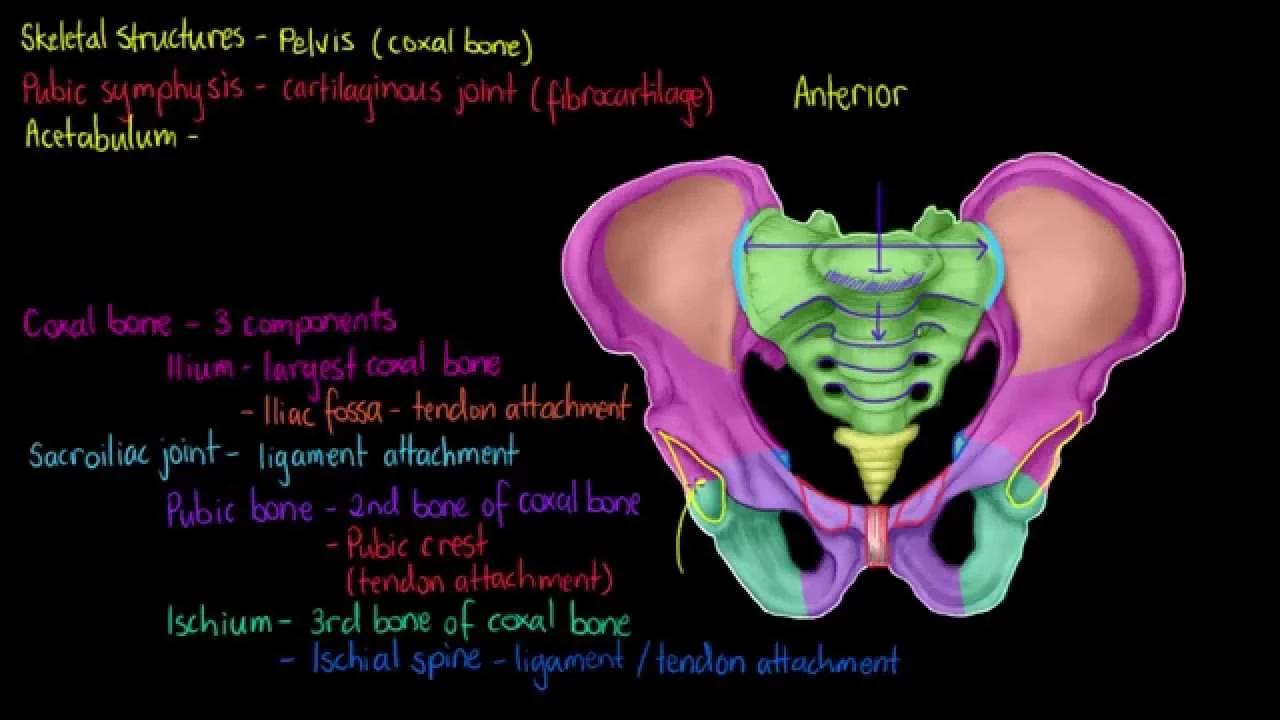 Skeletal structures - Pelvis (coxal bone)
Pubic symphysis - cartilaginous joint (fibrocartilage)
Anterior
Acetabulum -
Coxal bone - 3 components
Ilium - largest coxal bone
- Iliac fossa - tendon attachment
Sacroiliac joint - ligament attachment
Pubic bone - 2nd bone of coxal bone
- Pubic crest
(tendon attachment)
Ischium - 3rd bone of coxal bone
- Ischial spine - ligament / tendon attachment